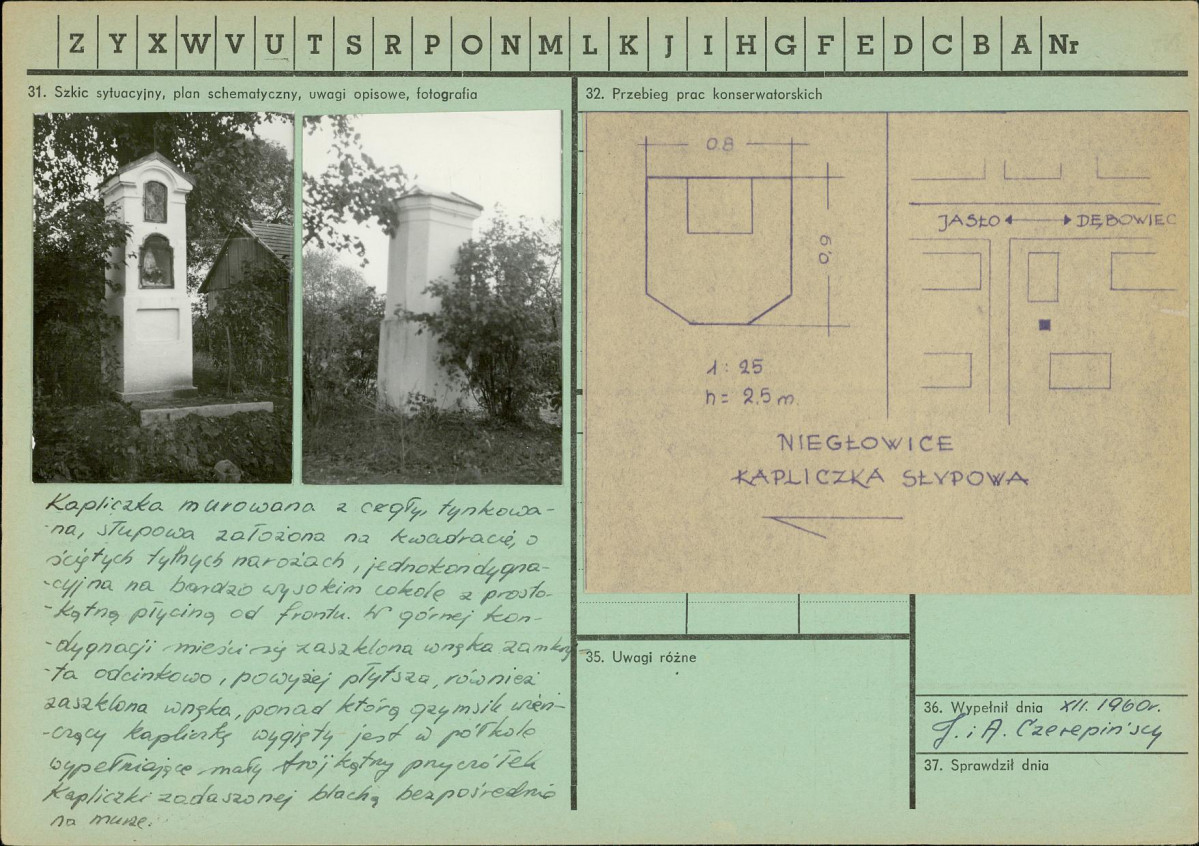 Z Y X W V U T S R P O N M L K J I H G F E D C B A Nr
31. Szkic sytuacyjny, plan schematyczny, uwagi opisowe, fotografia
Kapliczka murowana z cegły, tynkowa-
-na, słupowa założona na kwadracie, o
ściętych tylnych narożach, jednokondygna-
-cyjna na bardzo wysokim cokole z prosto-
-kątną płyciną od frontu. W górnej kon-
-dygnacji mieści się zaszklona wnęka zamknię
-ta odcinkowo, powyżej płytsza, również
zaszklona wnęka, ponad którą gzymsik wień-
-czący kapliczkę wygięty jest w półkole
wypełniające mały trójkątny przyczółek
Kapliczki zadaszonej blachą bezpośrednio
na murze.
32. Przebieg prac konserwatorskich
0.8
0.9
1 : 25
h = 2.5 m
JASŁO DĘBOWIEC
NIEGŁOWICE
KAPLICZKA SŁUPOWA
35. Uwagi różne
36. Wypełnił dnia XII. 1960r.
J. i A. Czerepińscy
37. Sprawdził dnia